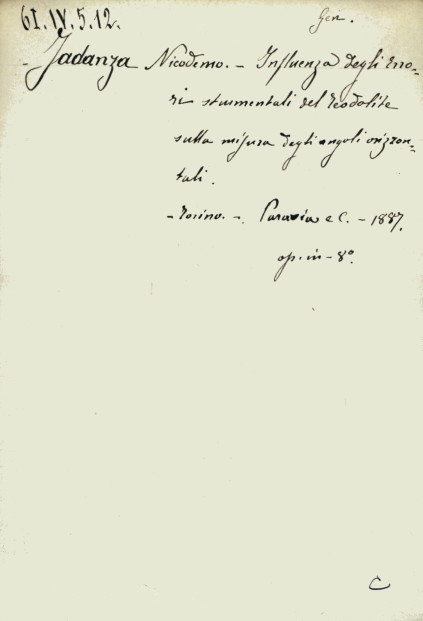 61.IV.5.12. Gen.
Jadanza Nicodemo. - Influenza degli erro-
ri strumentali del teodolite
sulla misura degli angoli orizzon-
tali.
- Torino. - Paravia e C. - 1887.
op. in - 8°.
C